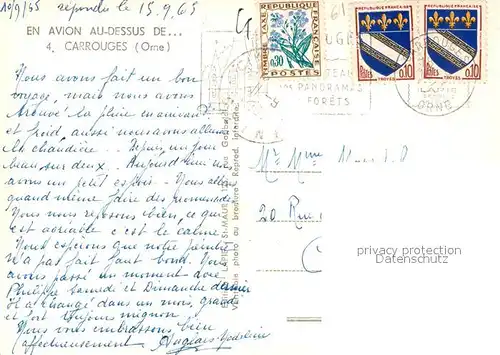 10/9/65 répondu le 15.9.65
EN AVION AU-DESSUS DE...
4. CARROUGES (Orne)
Nous avons fait un bon
voyage, mais nous avons
trouvé la pluie en arrivant
et froid, aussi nous avons allumé
la chaudière. Depuis, un jour
beau sur deux. Aujourd'hui nous
avons un petit espoir. Nous allons
quand même faire des promenades
Nous nous reposons bien, ce qui
est agréable c'est le calme.
Nous espérons que notre peintre
n'a pas fait faut bond. Nous
avons passé un moment avec
Philippe Samedi et Dimanche dernier
il a changé dans un mois, grand
et fort toujours mignon
Nous vous embrassons bien
affectueusement
TIMBRE TAXE
REPUBLIQUE FRANÇAISE
0.30
POSTES
Postes 0.10
TROYES
Postes 0.10
TROYES
CARROUGES
PANORAMAS
FORÊTS
ORNE
LAPIE
ST-MAUR
Reprod. interdite
Mr Mme
20 Rue
privacy protection
Datenschutz